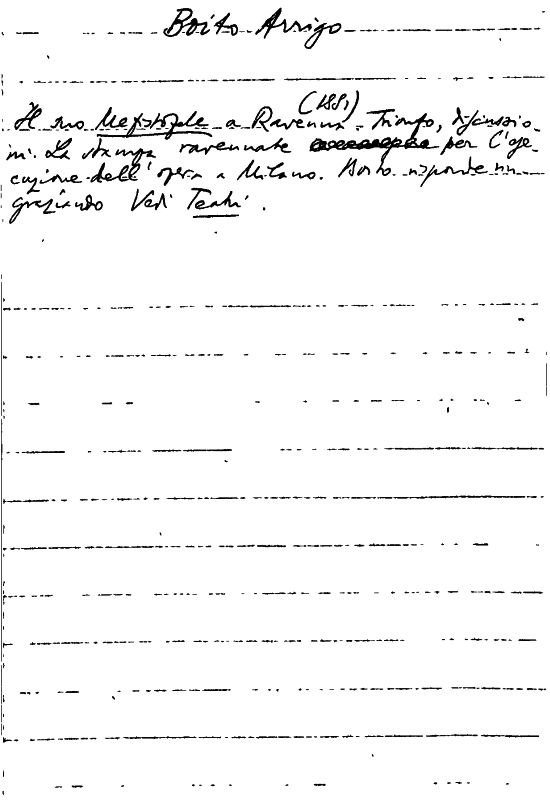 Boito Arrigo
(1881)
Il suo Mefistofele a Ravenna. Trionfo, discussio-
ni. La stampa ravennate per l'ese-
cuzione dell'opera a Milano. Boito risponde rin-
graziando Vedi Teatri.